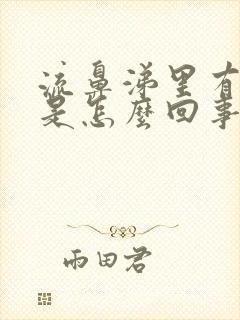 流鼻涕里有
是怎麼回事
雨田君